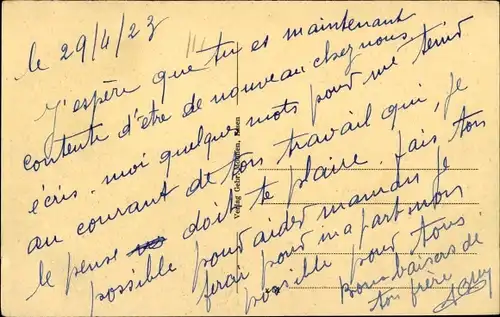 le 29/4/23
J'espère que tu es maintenant
contente d'être de nouveau chez nous
écris-moi quelques mots pour me tenir
au courant de ton travail qui, je
le pense doit te plaire. fais ton
possible pour aider maman je
ferai pour ma part mon
possible pour tous.
bons baisers de
ton frère
Verlag Gebr.